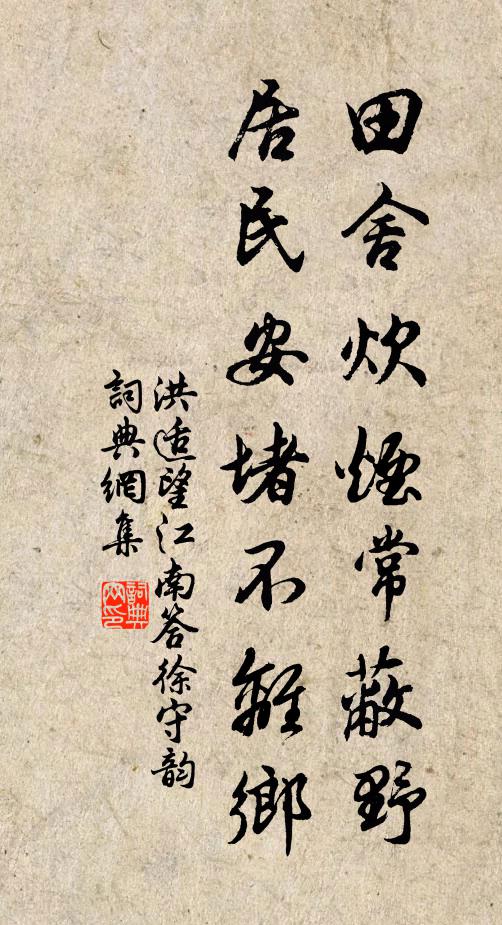 田舍炊煙常蔽野
居民安堵不離鄉
洪适望江南答徐守韵
詞典網集
詞典網印